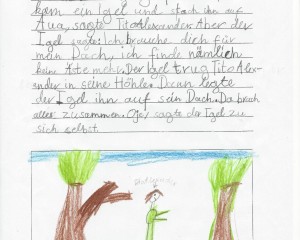 kam ein Igel und stach ihn auf
Aua, sagte Tito Alexander. Aber der
Igel sagte: Ich brauche dich für
mein Dach, ich finde nämlich
keine Äste mehr. Der Igel trug Tito Alex-
ander in seine Höhle. Dann legte
der Igel ihn auf sein Dach. Da brach
alles zusammen. Oje, sagte der Igel zu
sich selbst.